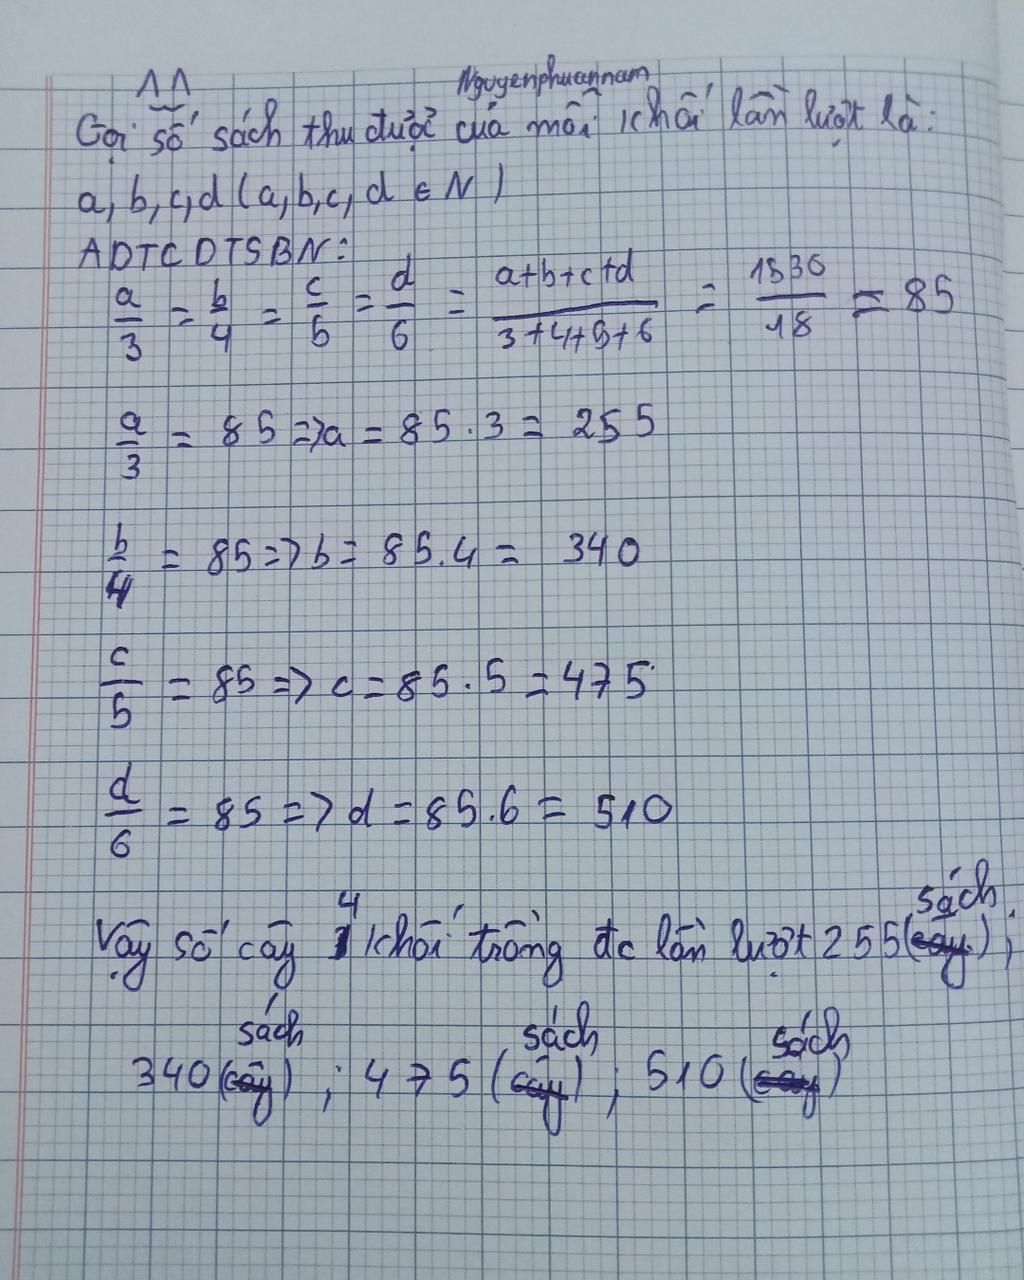 ΛΛ
Nguyenphuannam
Gọi số sách thu được của mỗi khối lần lượt là:
a, b, c, d (a, b, c, d ∈ N)
ADTCDTSBN:
a/3 = b/4 = c/5 = d/6 = (a+b+c+d)/(3+4+5+6) = 1530/18 = 85
a/3 = 85 => a = 85.3 = 255
b/4 = 85 => b = 85.4 = 340
c/5 = 85 => c = 85.5 = 475
d/6 = 85 => d = 85.6 = 510
Vậy số cây 4 khối trồng đc lần lượt 255 (sách);
340 (sách); 475 (sách); 510 (sách)